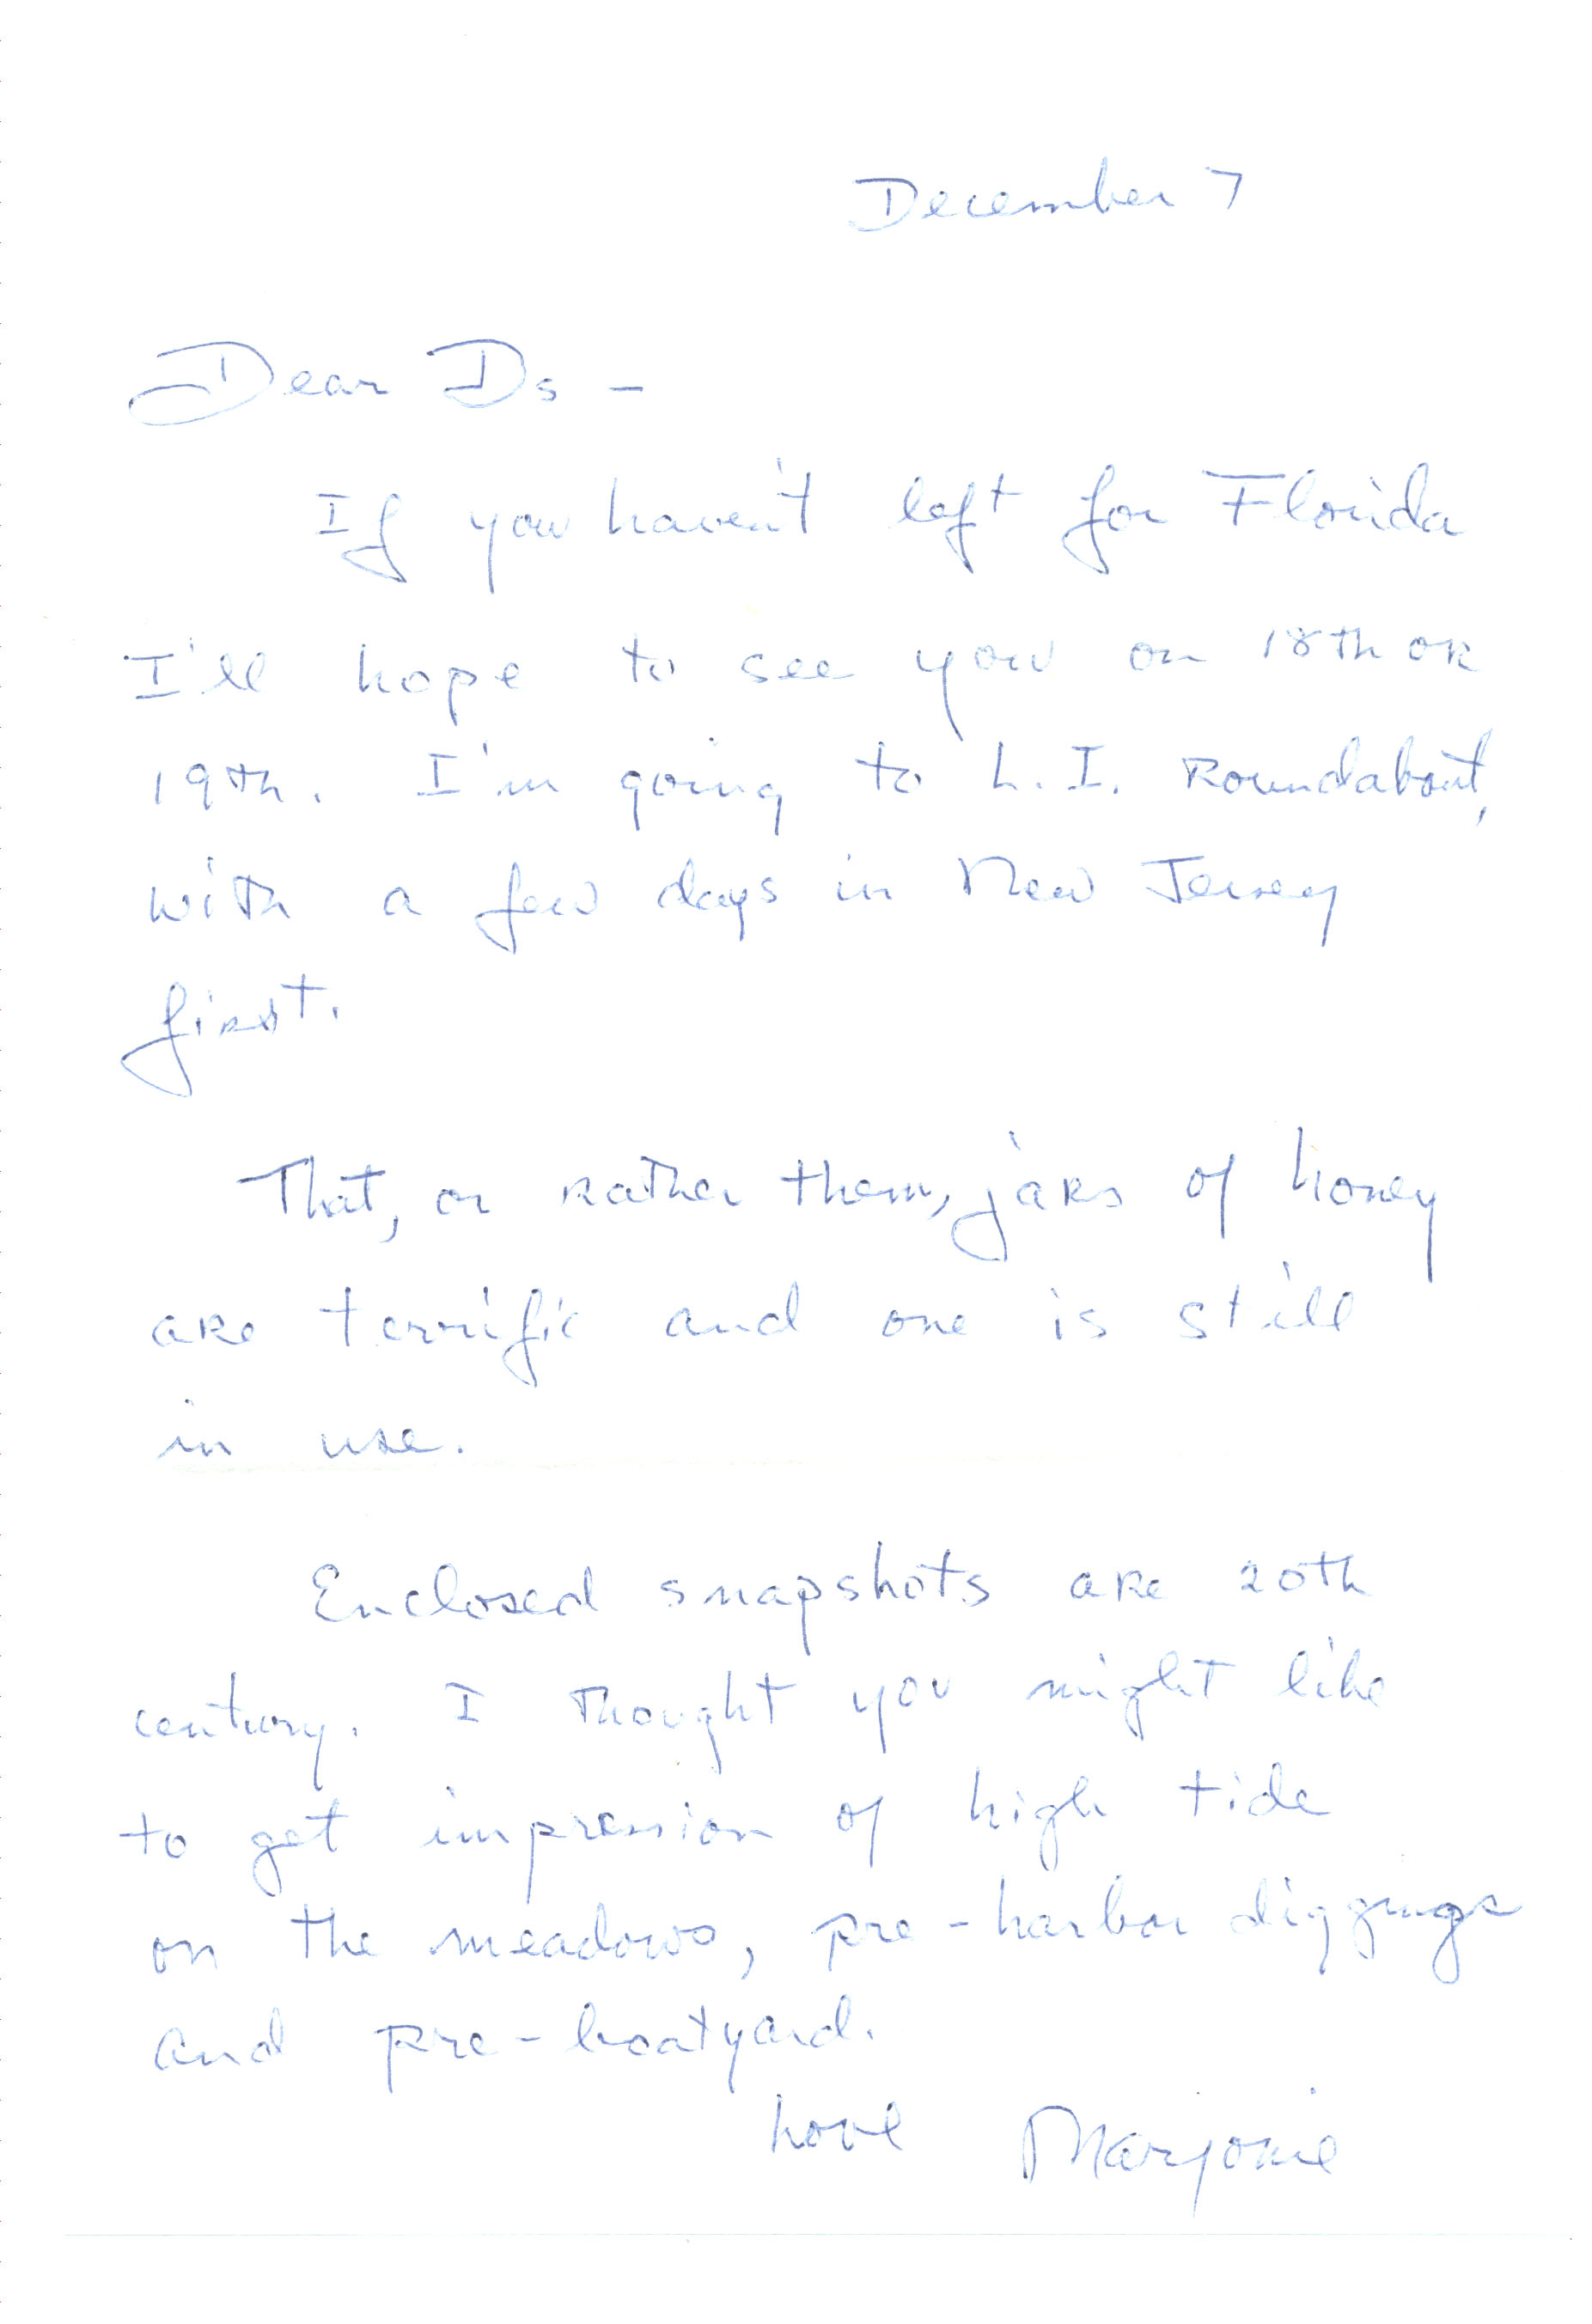 December 7
Dear Ds –
If you haven't left for Florida
I'll hope to see you on 18th or
19th. I'm going to L.I. Roundabout,
with a few days in New Jersey
first.
That, or rather them, jars of honey
are terrific and one is still
in use.
Enclosed snapshots are 20th
century. I thought you might like
to get impression of high tide
on the meadows, pre-harbor diggings
and pre-boatyard.
Love Marjorie